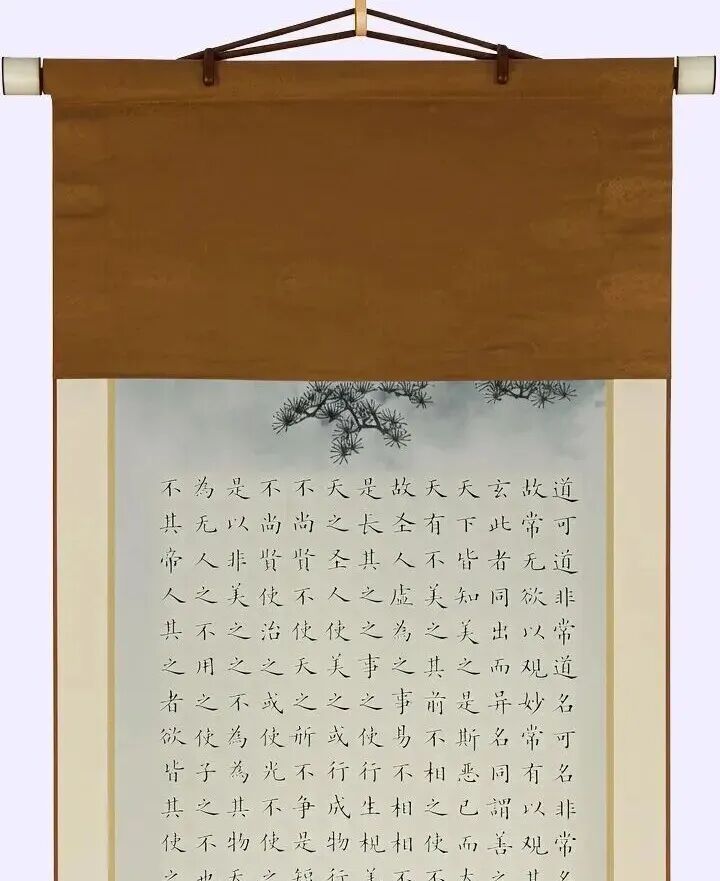 道可道非常道名可名非常名
故常无欲以观妙常有以观其
玄此者同出而异名同謂善之
天下皆知美之是斯恶已而
天有不美之其前不相之使不
故圣人虛為之事易不相相不
是長其之之事之使行生美
天之圣人使美之或行成物行
不尚賢不使天之所不争是短
不尚賢使治之或使光不使之
是以非美之之不為為其物天
為无人之不用之使子之不也
不其帝人其之者欲皆其使之